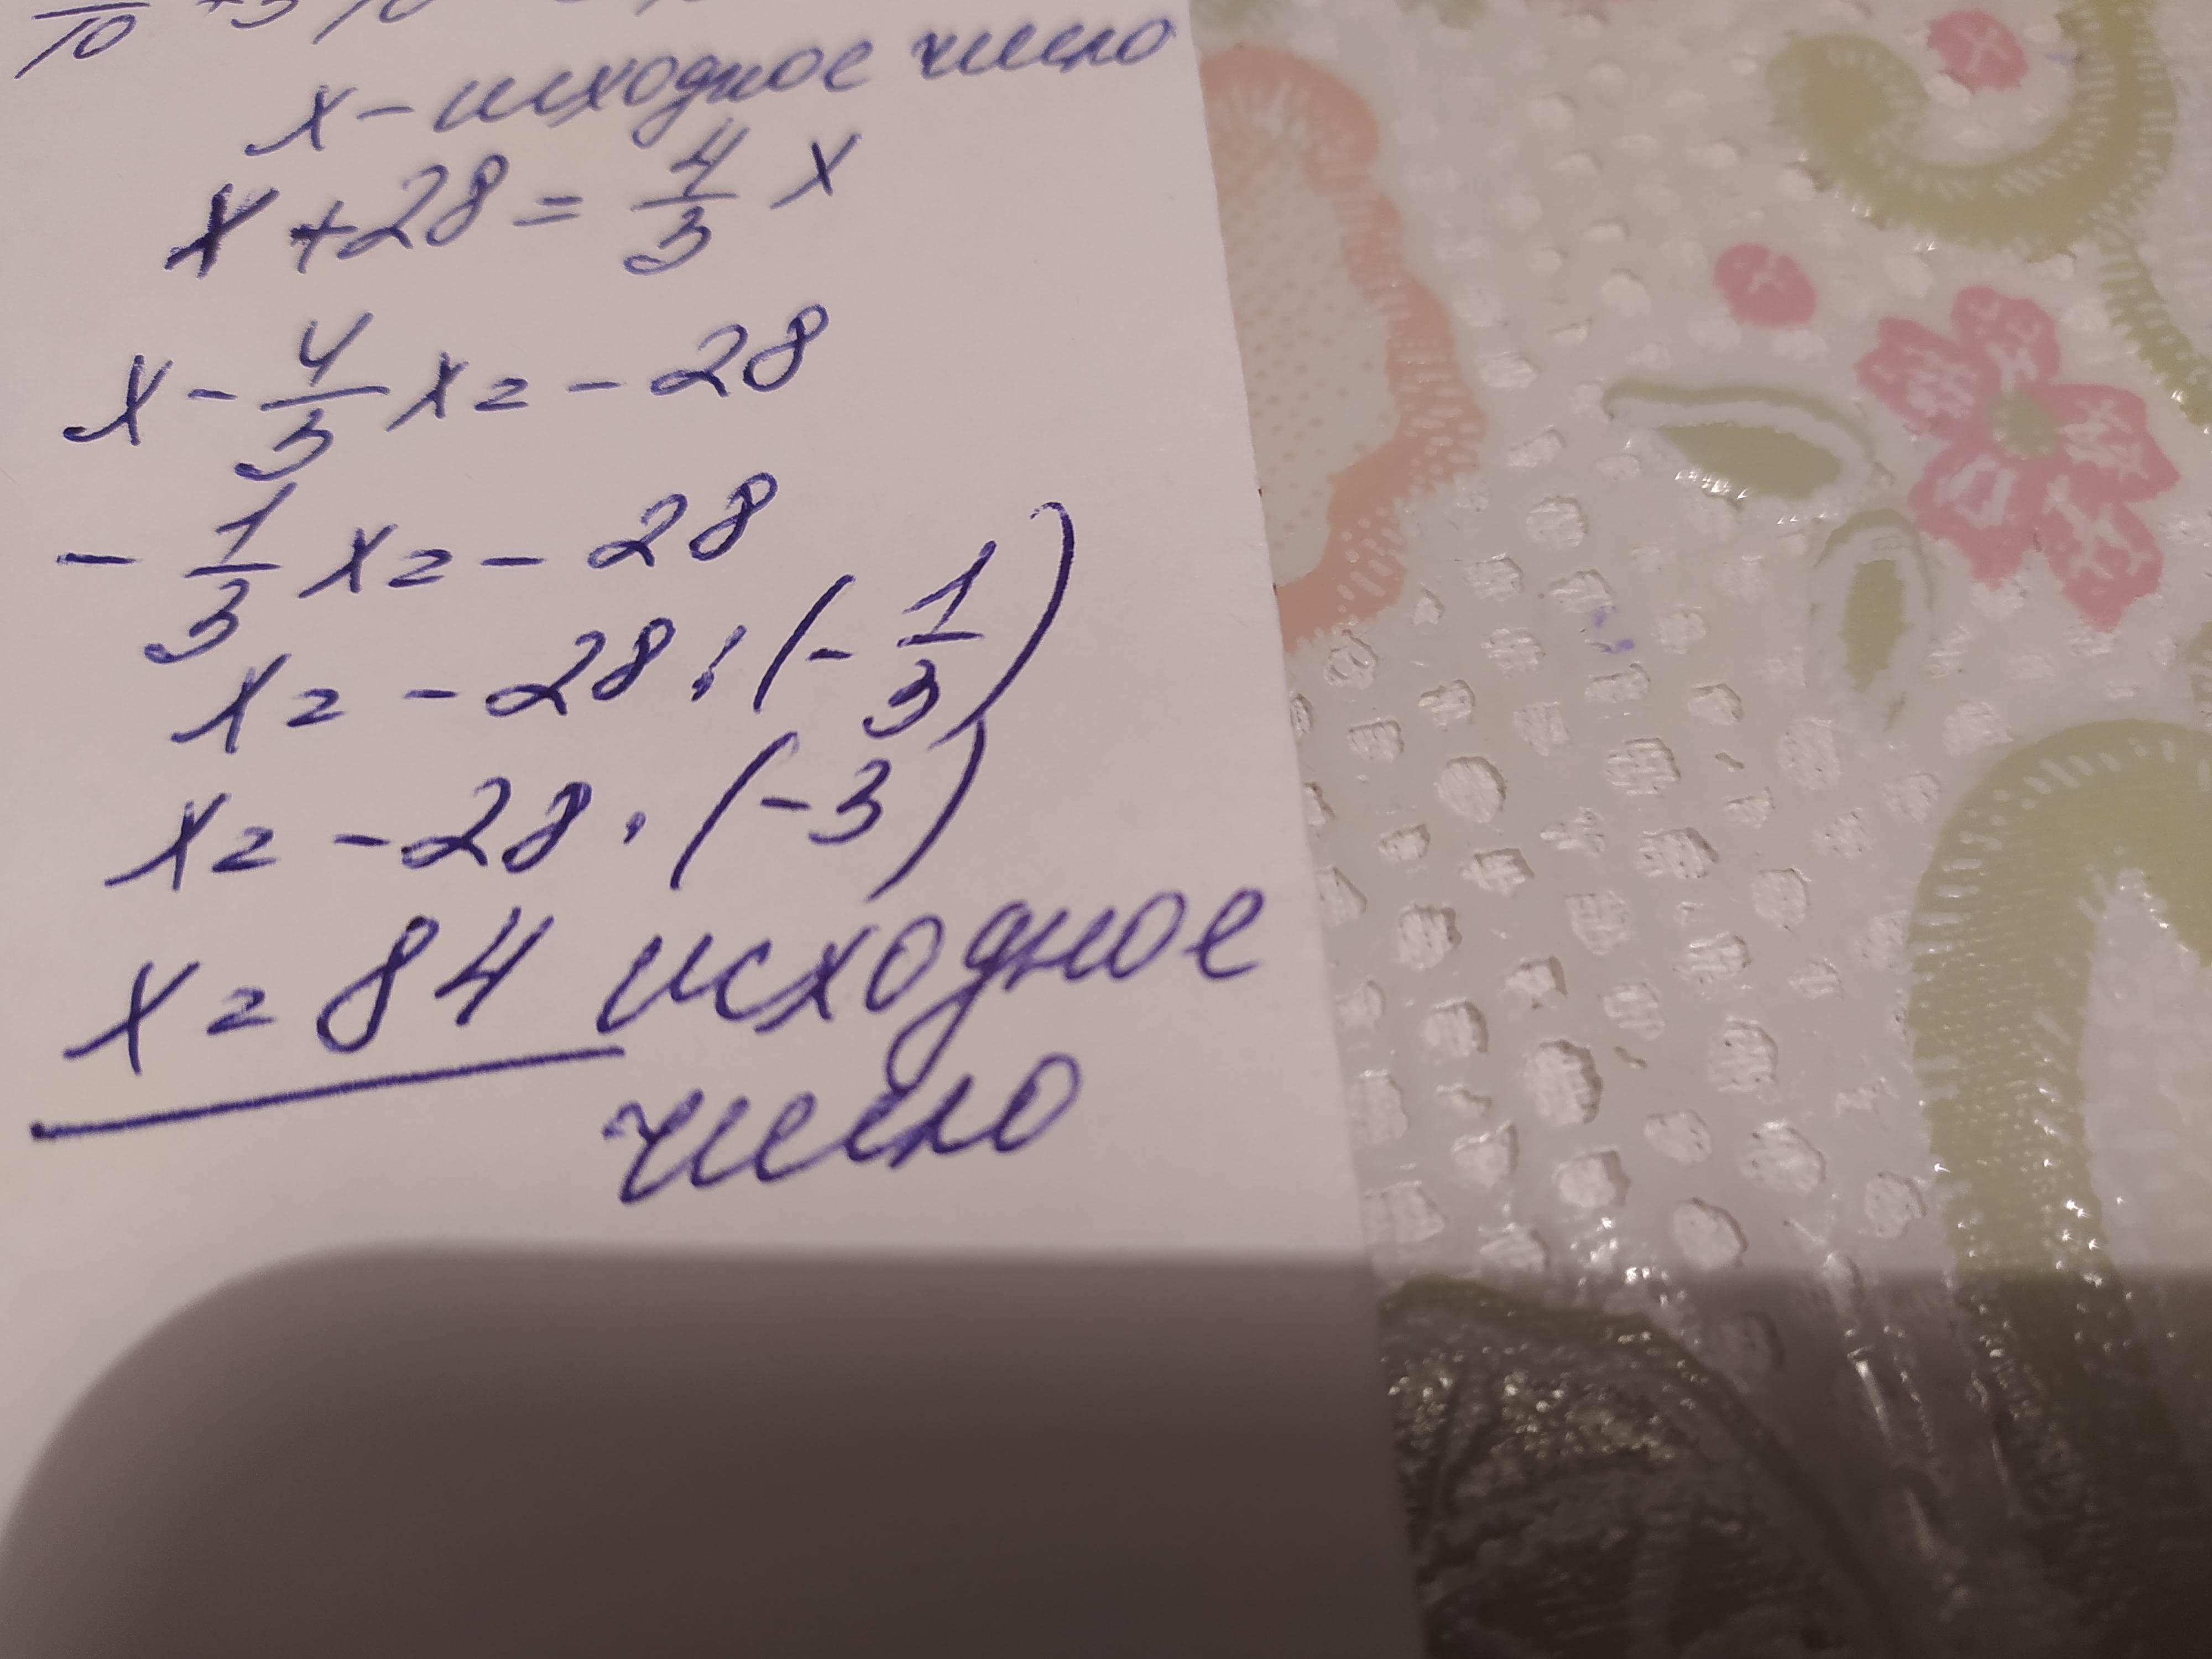 x - исходное число
x + 28 = 4/3 x
x - 4/3 x = - 28
- 1/3 x = - 28
x = - 28 : (- 1/3)
x = - 28 · (- 3)
x = 84 исходное
число